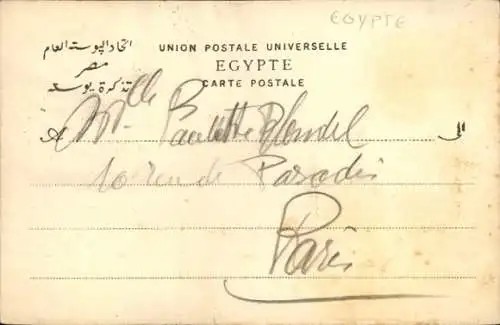 EGYPTE
اتحاد البوستة العام
UNION POSTALE UNIVERSELLE
مصر
EGYPTE
تذكرة بوستة
CARTE POSTALE
A Mlle Paulette Blondel الى
10 rue de Paradis
Paris